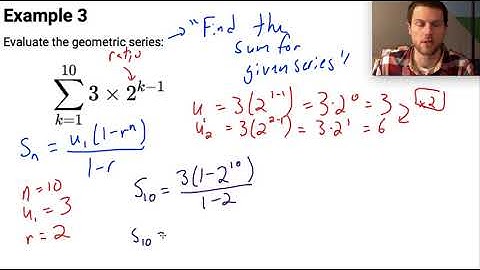 Example 3
Evaluate the geometric series:
→ "Find the
sum for
given series"
ratio
10
∑ 3 × 2^{k−1}
k=1
u₁ = 3(2^{1-1}) = 3·2⁰ = 3
u₂ = 3(2^{2-1}) = 3·2¹ = 6
×2
Sₙ = u₁(1-rⁿ) / 1-r
n = 10
u₁ = 3
r = 2
S₁₀ = 3(1-2¹⁰) / 1-2
S₁₀ =